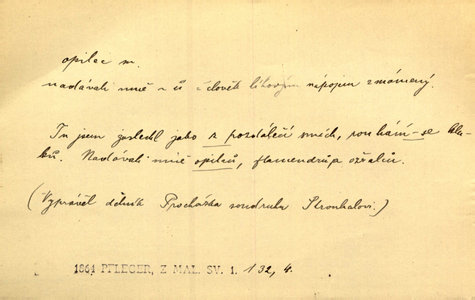 opilec m.
nadávali mně -ů člověk lihovým nápojem zmámený.
Tu jsem zaslechl jako z pozdálečí smích, rouhám-se
ků. Nadávali mně opilců, flamendrů a ožralů.
(Vyprávěl dělník Procházka soudruhu Strouhalovi.)
1864 PFLEGER, Z MAL. SV. 1. 132, 4.